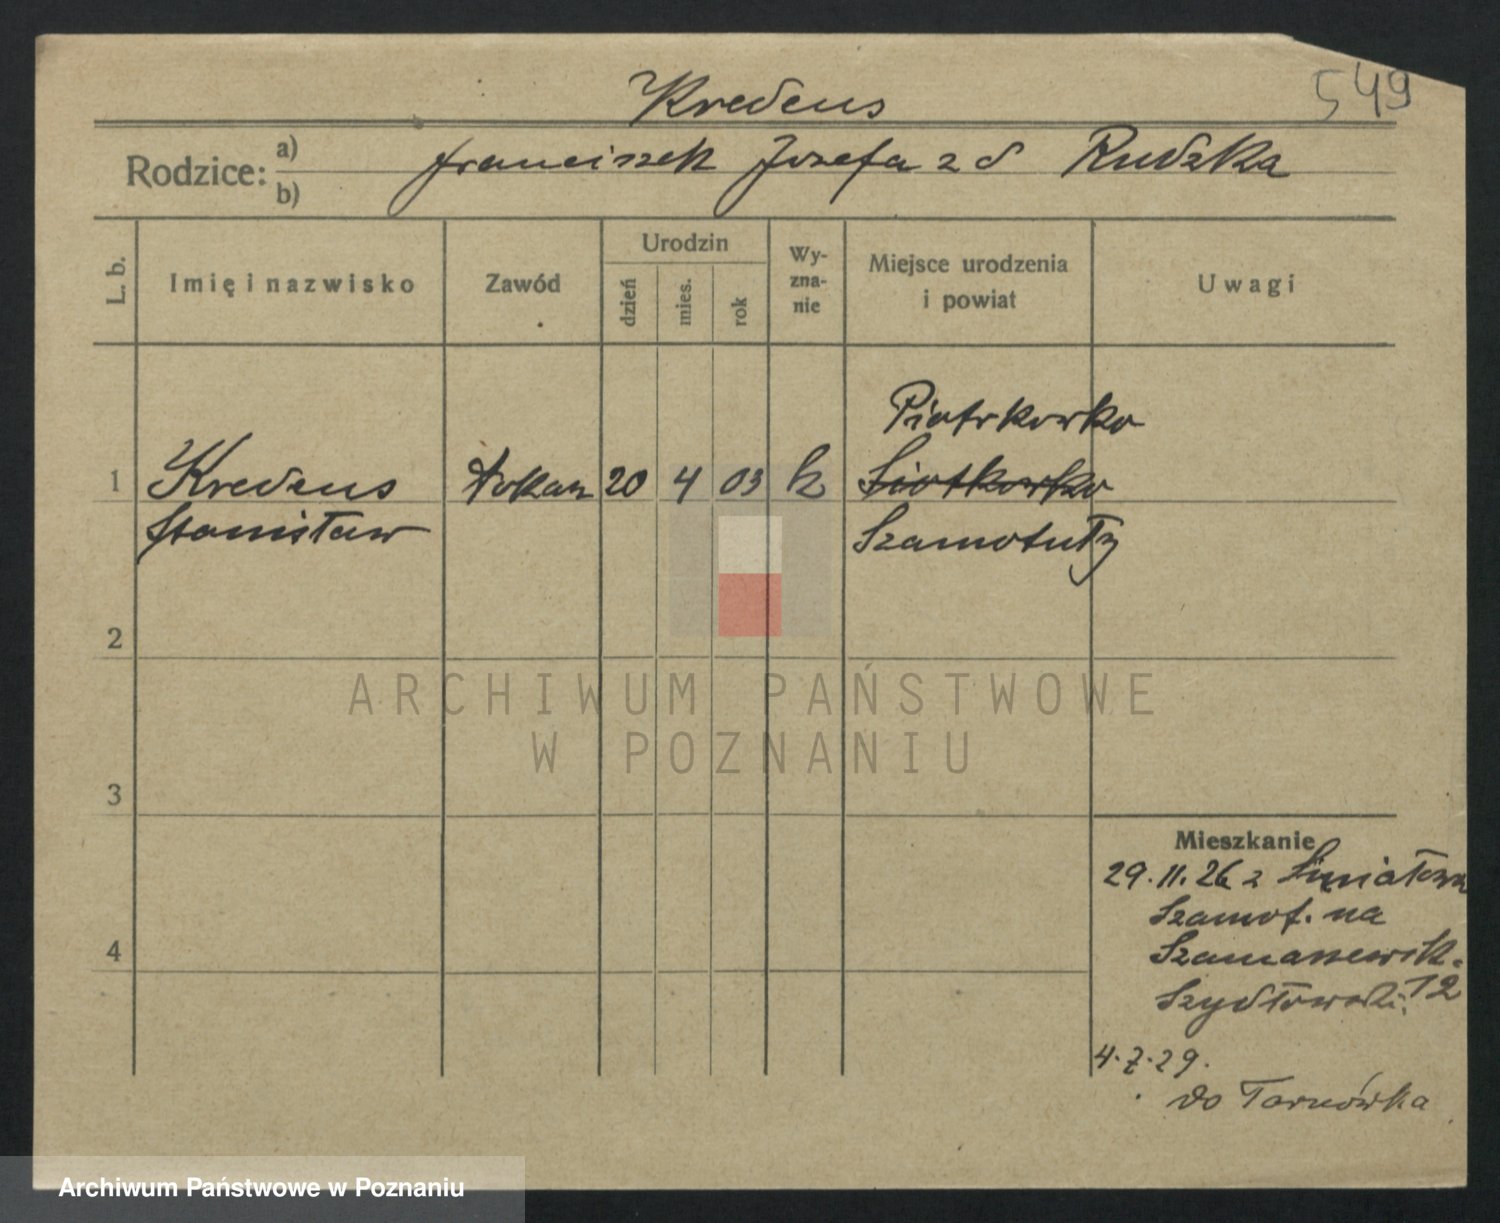 549
Kredens
Rodzice: a) b)
Franciszek Józefa z d Rudzka
L. b.
Imię i nazwisko
Zawód
Urodzin
dzień
mies.
rok
Wy-
zna-
nie
Miejsce urodzenia
i powiat
Uwagi
Piotrkowko
1 Kredens 20 4 03 k
Stanisław Szamotuły
2
3
4
ARCHIWUM PAŃSTWOWE
W POZNANIU
Mieszkanie
29.11.26 z
Szamot. na
Szydłowski. 12
4.7.29.
do Tarnówka
Archiwum Państwowe w Poznaniu